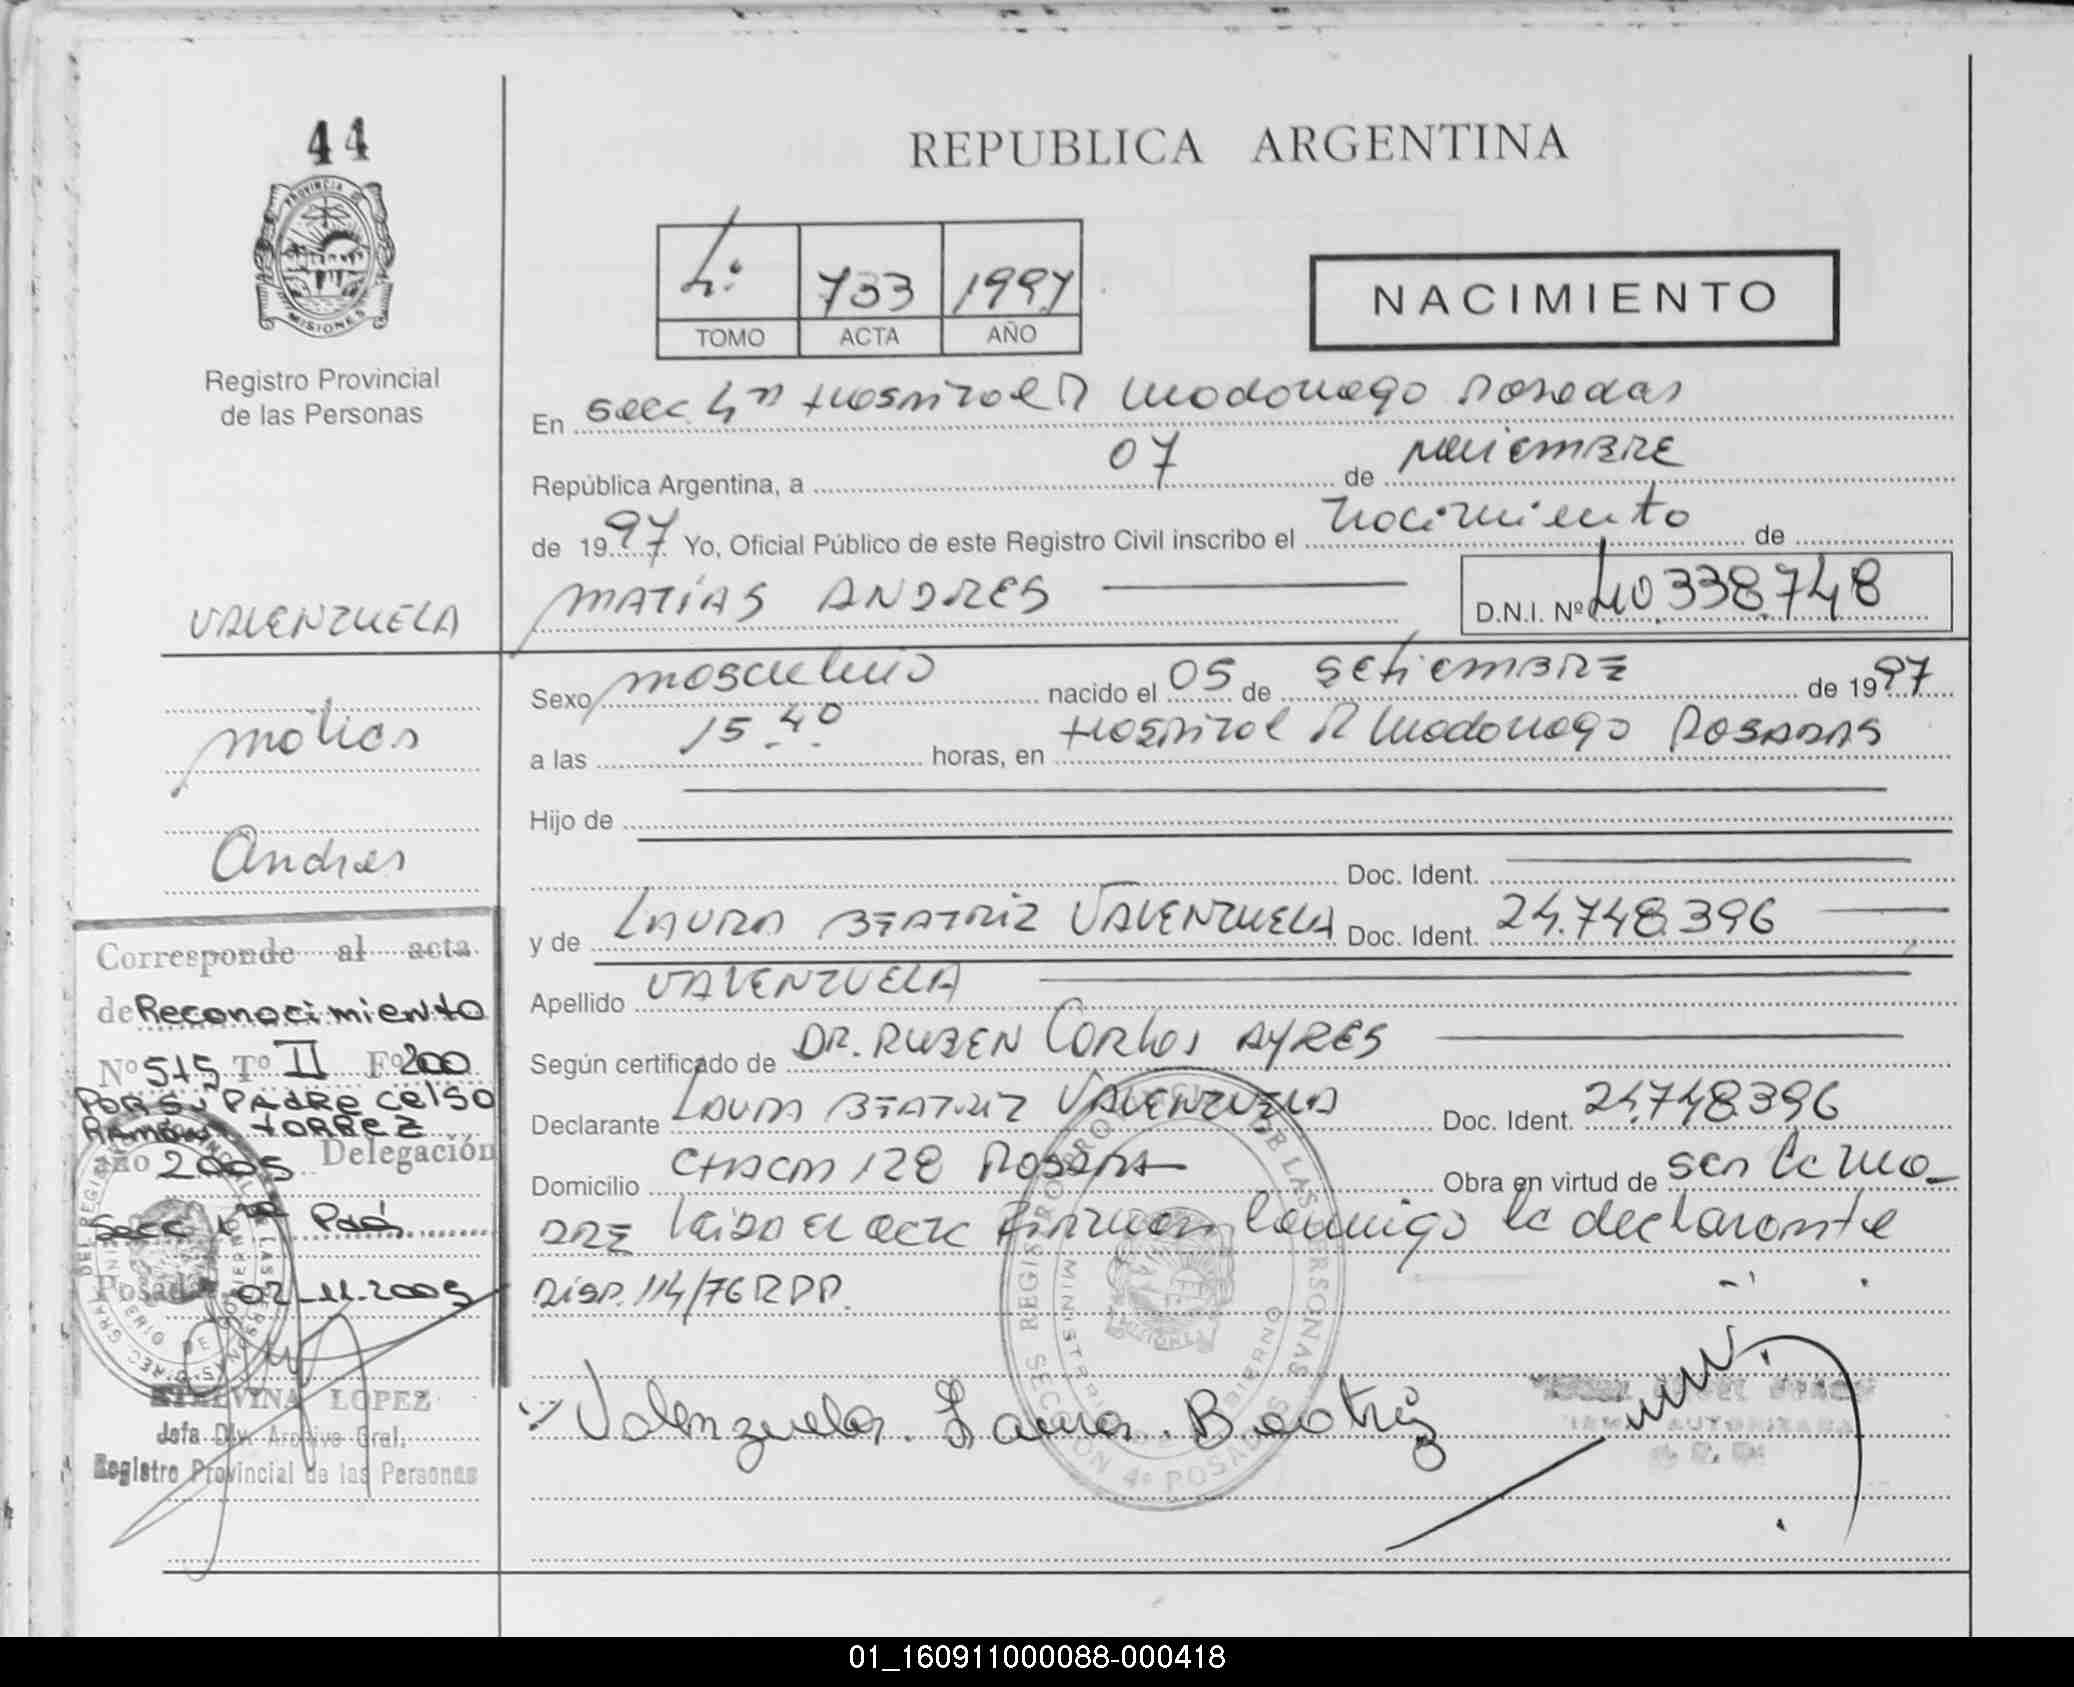 44
PROVINCIA DE
MISIONES
Registro Provincial
de las Personas
REPUBLICA ARGENTINA
4º 733 1997
TOMO ACTA AÑO
NACIMIENTO
En Secc 4ta Hospital R Madariaga Posadas
República Argentina, a 07 de noviembre
de 1997 Yo, Oficial Público de este Registro Civil inscribo el nacimiento de
MATÍAS ANDRES
D.N.I. Nº 40.338.748
VALENZUELA
Matias
Andres
Sexo masculino nacido el 05 de setiembre de 1997
a las 15.40 horas, en Hospital R Madariaga Posadas
Hijo de
Doc. Ident.
y de LAURA BEATRIZ VALENZUELA Doc. Ident. 24.748.396
Apellido VALENZUELA
Según certificado de DR. RUBEN Carlos AYRES
Declarante LAURA BEATRIZ VALENZUELA Doc. Ident. 24.748.396
Domicilio CHACRA 128 Posadas Obra en virtud de ser la ma-
DRE leída el acta firman conmigo la declarante
Disp. 114/76 R.P.P.
Valenzuela. Laura. Beatriz
Corresponde al acta
de Reconocimiento
Nº 515 Tº II Fº 200
POR SU PADRE CELSO
RAMON TORREZ
año 2005 Delegación
Secc. 1ra Pdas
Posadas 02-11-2005
ETELVINA LOPEZ
Jefa Div. Archivo Gral.
Registro Provincial de las Personas
REGISTRO PROV. DE LAS PERSONAS
MINISTERIO DE GOBIERNO
SECCION 4º POSADAS
01_160911000088-000418